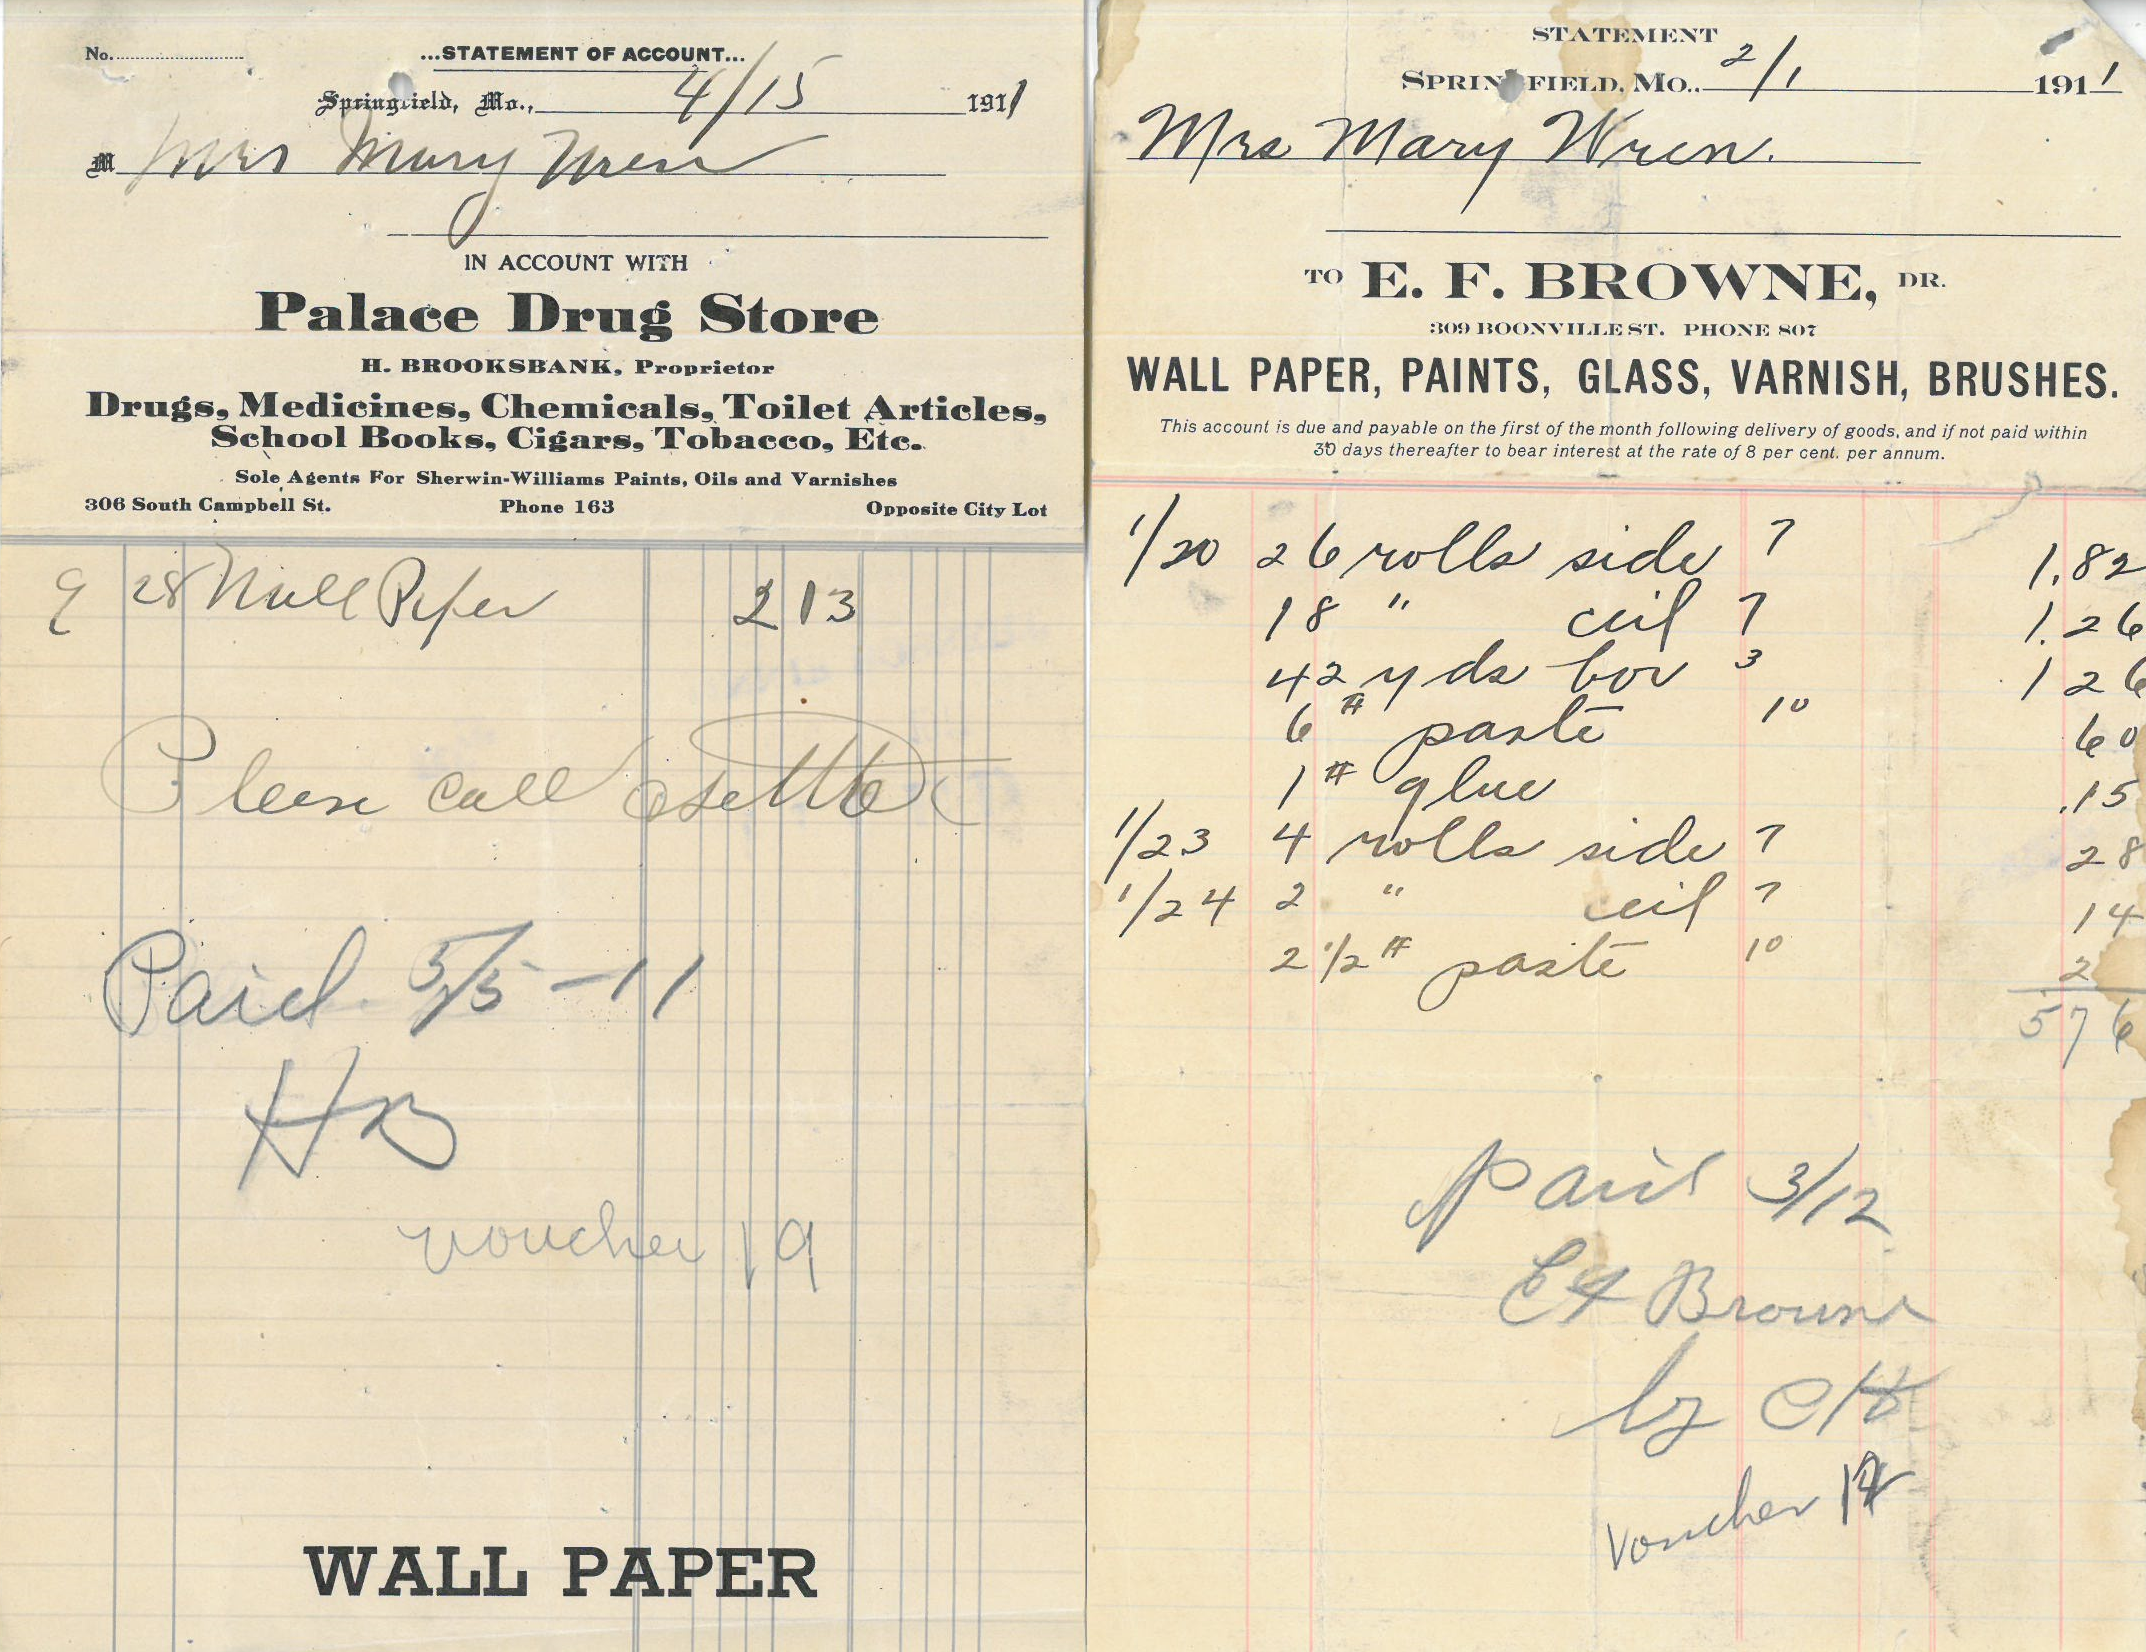 No.
...STATEMENT OF ACCOUNT...
Springfield, Mo., 4/15 1911
M Mrs Mary Wren
IN ACCOUNT WITH
Palace Drug Store
H. BROOKSBANK, Proprietor
Drugs, Medicines, Chemicals, Toilet Articles,
School Books, Cigars, Tobacco, Etc.
Sole Agents For Sherwin-Williams Paints, Oils and Varnishes
306 South Campbell St. Phone 163 Opposite City Lot
28 Wall Paper 2 13
Please call & settle
Paid 5/5-11
HB
voucher 19
WALL PAPER
STATEMENT
SPRINGFIELD, MO., 2/1 1911
Mrs Mary Wren.
TO E. F. BROWNE, DR.
309 BOONVILLE ST. PHONE 807
WALL PAPER, PAINTS, GLASS, VARNISH, BRUSHES.
This account is due and payable on the first of the month following delivery of goods, and if not paid within
30 days thereafter to bear interest at the rate of 8 per cent. per annum.
1/20 26 rolls side 7 1.82
18 " ceil 7 1.26
42 yds bor 3 1 26
6 # paste 10 60
1 # glue .15
1/23 4 rolls side 7 28
1/24 2 " ceil 7 14
2 1/2 # paste 10 2
5 76
paid 3/12
EF Browne
by CH
voucher